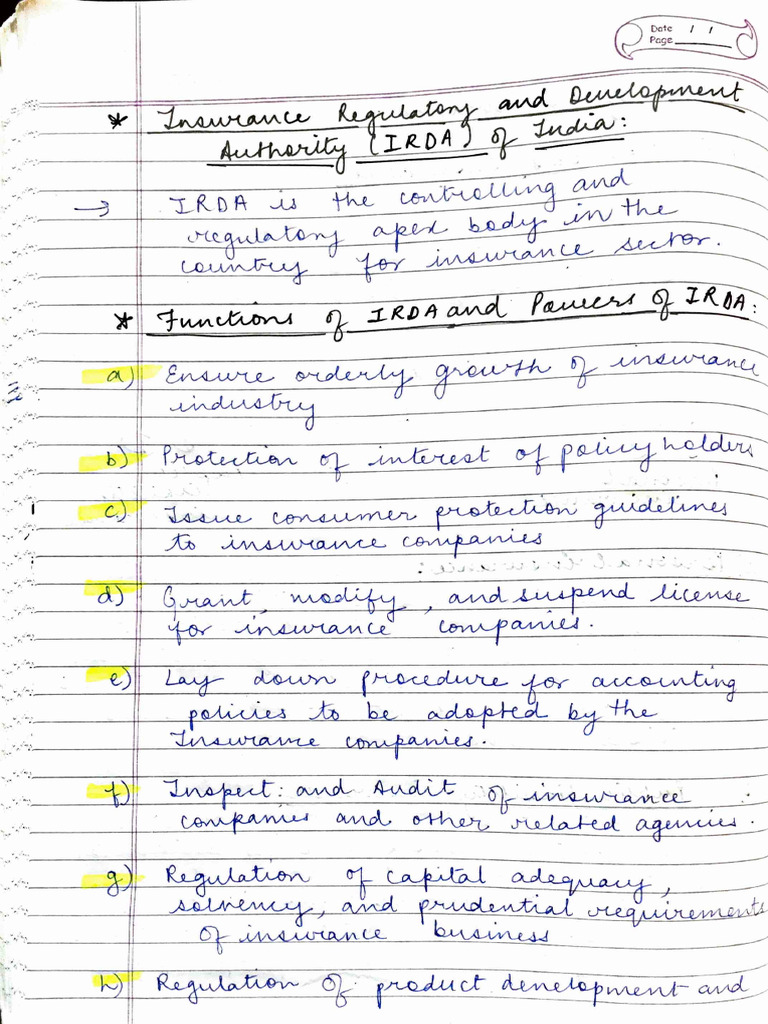 Date / /
Page
* Insurance Regulatory and Development
Authority (IRDA) of India:
→ IRDA is the controlling and
regulatory apex body in the
country for insurance sector.
* Functions of IRDA and Powers of IRDA:
a) Ensure orderly growth of insurance
industry
b) Protection of interest of policy holders
c) Issue consumer protection guidelines
to insurance companies
d) Grant, modify, and suspend license
for insurance companies.
e) Lay down procedure for accounting
policies to be adopted by the
Insurance companies.
f) Inspect: and Audit of insurance
companies and other related agencies.
g) Regulation of capital adequacy,
solvency, and prudential requirements
of insurance business
h) Regulation of product development and